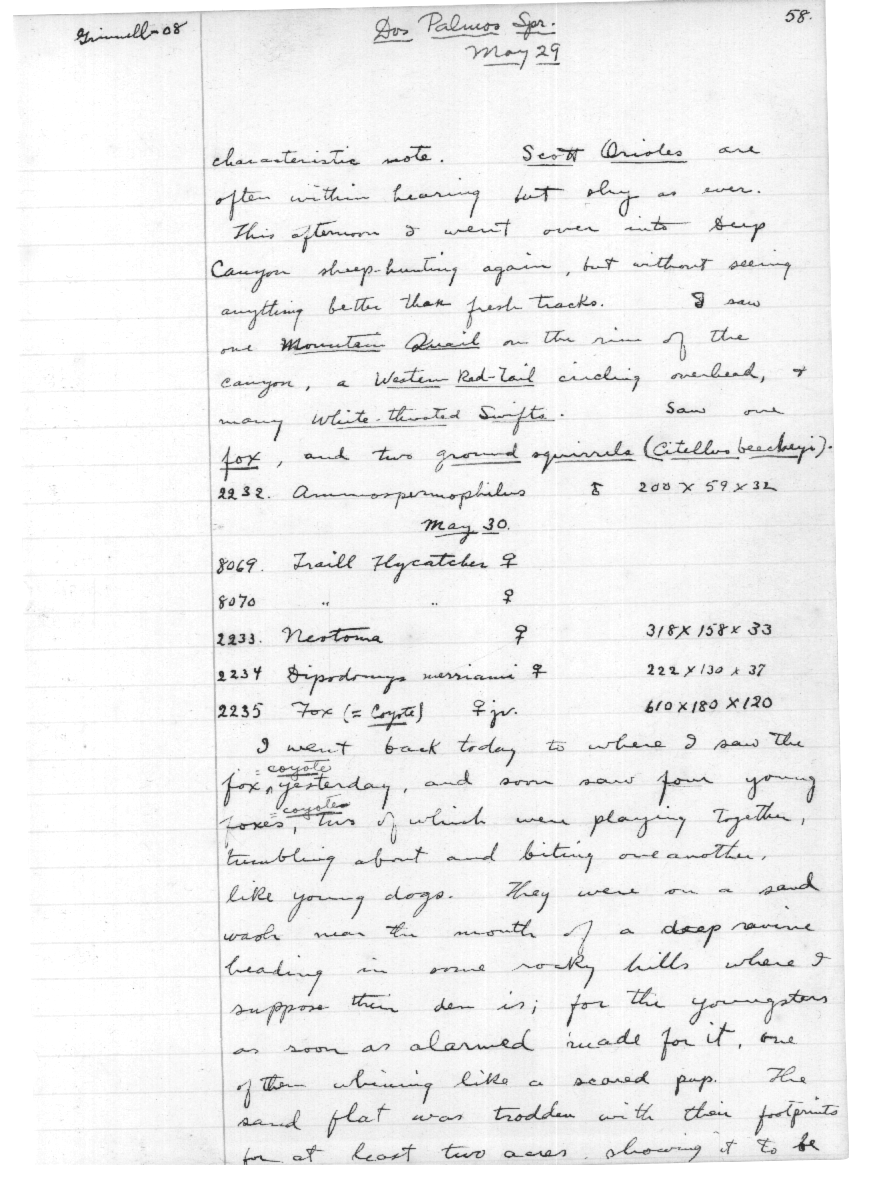 Grinnell-08
Dos Palmos Spr.
58.
May 29
characteristic note. Scott Orioles are
often within hearing but shy as ever.
This afternoon I went over into Deep
Canyon sheep-hunting again, but without seeing
anything better than fresh tracks. I saw
one Mountain Quail on the rim of the
canyon, a Western Red-Tail circling overhead, +
many White-throated Swifts. Saw one
fox, and two ground squirrels (Citellus beecheyi).
2232. Ammospermophilus 200 X 59 X 32
May 30.
8069. Traill Flycatcher ♀
8070 " " ♀
2233. Neotoma ♀ 318 X 158 X 33
2234 Dipodomys merriami ♀ 222 X 130 X 37
2235 Fox (= Coyote) ♀ jv. 610 X 180 X 120
I went back today to where I saw the
= coyote
fox ^ yesterday, and soon saw four young
= coyotes
foxes, two of which were playing together,
tumbling about and biting one another,
like young dogs. They were on a sand
wash near the mouth of a deep ravine
heading in some rocky hills where I
suppose their den is; for the youngsters
as soon as alarmed made for it, one
of them whining like a scared pup. The
sand flat was trodden with their footprints
for at least two acres, showing it to be